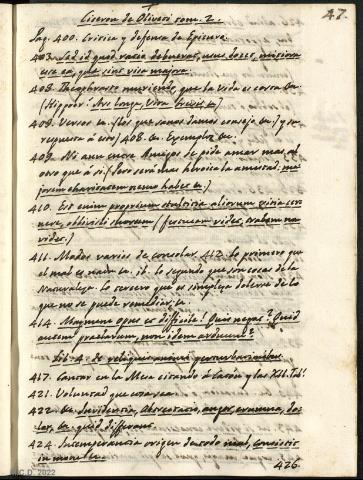 47.
Ciceron de Oliveti tom. 2.
Pag. 400. Critica y defensa de Epicuro.
403. Sed id quod ratio debuerat, usus docet, minora esse ea, quae sint visa majora.
408. Theophrasto muriendo, que la vida es corta &c.
(Hippocr: Ars longa, Vita brevis &c)
409. Versos &c. (los que sanos damos consejo &c.) y
respuesta á esto) 408. &c. Exemplos &c.
409. Ni aun entre Amigos se pide amar mas al
otro que á si (Pero será mas heroica la amistad. ma
jorem charitatem nemo habet &c.)
410. Est enim proprium stultitiae aliorum vitia cer
nere, oblivisci suorum (festucam vides, trabem non
vides.)
411. Modos varios de consolar. 412. lo primero que
el mal es nada &c. ib. lo segundo que son cosas de la
Naturaleza. lo tercero que es simpleza dolerse de lo
que no se puede remediar, &c.
414. Magnum opus et difficile! Quis negat? Quid
autem praeclarum, non idem arduum?
Lib. 4. De reliquis animi perturbationibus.
417. Cantar en la Mesa citando á Catón y las XII. Tab.
421. Voluntad que cosa sea
422. &c. Invidentia, Obtrectatio, angor, aerumna, do
lor, &c. quid differant.
424. Intemperantia origen de todo mal, consistit
in
426.
C.D. 2022